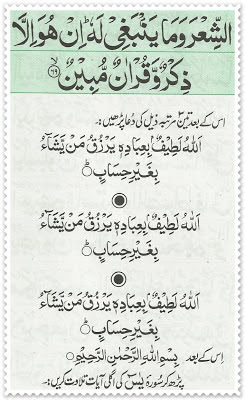 الشِّعْرَ وَمَا يَنْۢبَغِىْ لَهٗ ؕ اِنْ هُوَ اِلَّا
ذِكْرٌ وَّ قُرْاٰنٌ مُّبِيْنٌ ۙ﴿۶۹﴾
اِس کے بعد تین مرتبہ ذیل کی دُعا پڑھیں:۔
اَللهُ لَطِيْفٌۢ بِعِبَادِهٖ يَرْزُقُ مَنْ يَّشَآءُ
بِغَيْرِ حِسَابٍ ؕ
اَللهُ لَطِيْفٌۢ بِعِبَادِهٖ يَرْزُقُ مَنْ يَّشَآءُ
بِغَيْرِ حِسَابٍ ؕ
اَللهُ لَطِيْفٌۢ بِعِبَادِهٖ يَرْزُقُ مَنْ يَّشَآءُ
بِغَيْرِ حِسَابٍ ؕ
اِس کے بعد بِسْمِ اللهِ الرَّحْمٰنِ الرَّحِيْمِ ○
پڑھ کر سورۂ یٰسٓ کی اگلی آیات تلاوت کریں:۔